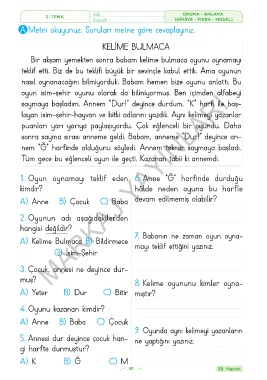 2. TEMA
OKUMA - ANLAMA
(HİKÂYE - FIKRA - MASAL)
A Metni okuyunuz. Soruları metne göre cevaplayınız.
KELİME BULMACA
Bir akşam yemekten sonra babam kelime bulmaca oyunu oynamayı
teklif etti. Biz de bu teklifi büyük bir sevinçle kabul ettik. Ama oyunun
nasıl oynanacağını bilmiyorduk. Babam hemen bize oyunu anlattı. Bu
oyun isim-şehir oyunu olarak da biliniyormuş. Ben içimden alfabeyi
saymaya başladım. Annem "Dur!" deyince durdum. "K" harfi ile baş-
layan isim-şehir-hayvan ve bitki adlarını yazdık. Aynı kelimeyi yazanlar
puanları yarı yarıya paylaşıyordu. Çok eğlenceli bir oyundu. Daha
sonra sayma sırası anneme geldi. Babam, anneme "Dur!" deyince an-
nem "Ğ" harfinde olduğunu söyledi. Annem tekrar saymaya başladı.
Tüm gece bu eğlenceli oyun ile geçti. Kazanan tabii ki annemdi.
1. Oyun oynamayı teklif eden
kimdir?
A) Anne B) Çocuk C) Baba
2. Oyunun adı aşağıdakilerden
hangisi değildir?
A) Kelime Bulmaca B) Bildirmece
C) İsim-Şehir
3. Çocuk, annesi ne deyince dur-
muş?
A) Yeter B) Dur C) Bitir
4. Oyunu kazanan kimdir?
A) Anne B) Baba C) Çocuk
5. Annesi dur deyince çocuk han-
gi harfte durmuştur?
A) K B) Ğ C) M
6. Anne "Ğ" harfinde durduğu
hâlde neden oyuna bu harfle
devam edilmemiş olabilir?
7. Babanın ne zaman oyun oyna-
mayı teklif ettiğini yazınız.
8. Kelime oyununu kimler oyna-
mıştır?
9. Oyunda aynı kelimeyi yazanların
ne yaptığını yazınız.